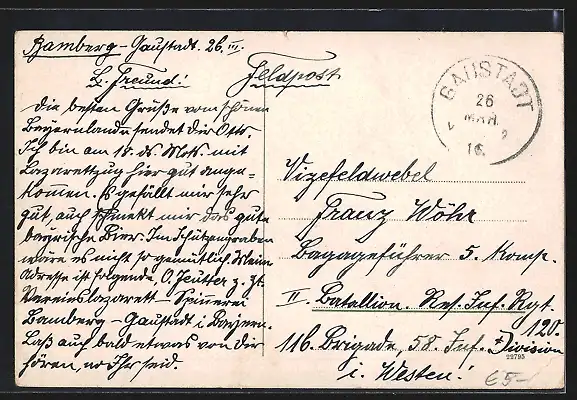 Bamberg-Gaustadt. 26. III.
L. Freund! Feldpost
Die besten Grüße vom schönen
Bayernlande sendet Dir Otto.
Ich bin am 18. ds. Mts. mit
Lazarettzug hier gut ange-
kommen. Es gefällt mir sehr
gut, auch schmekt mir das gute
bayrische Bier. Im Schützengraben
wäre es nicht so gemütlich. Mein
Adresse ist folgende, O. Jeutter z. Zt.
Vereinslazarett-Spinnerei
Bamberg-Gaustadt i. Bayern.
Laß auch bald etwas von dir
hören, wo Ihr seid.
GAUSTADT
26
MRH.
16.
Vizefeldwebel
Franz Wöhr
Bagageführer 5. Komp.
II. Batallion. Res. Inf. Rgt.
120.
116. Brigade, 58. Inf. Division
22795
i. Westen!
65-